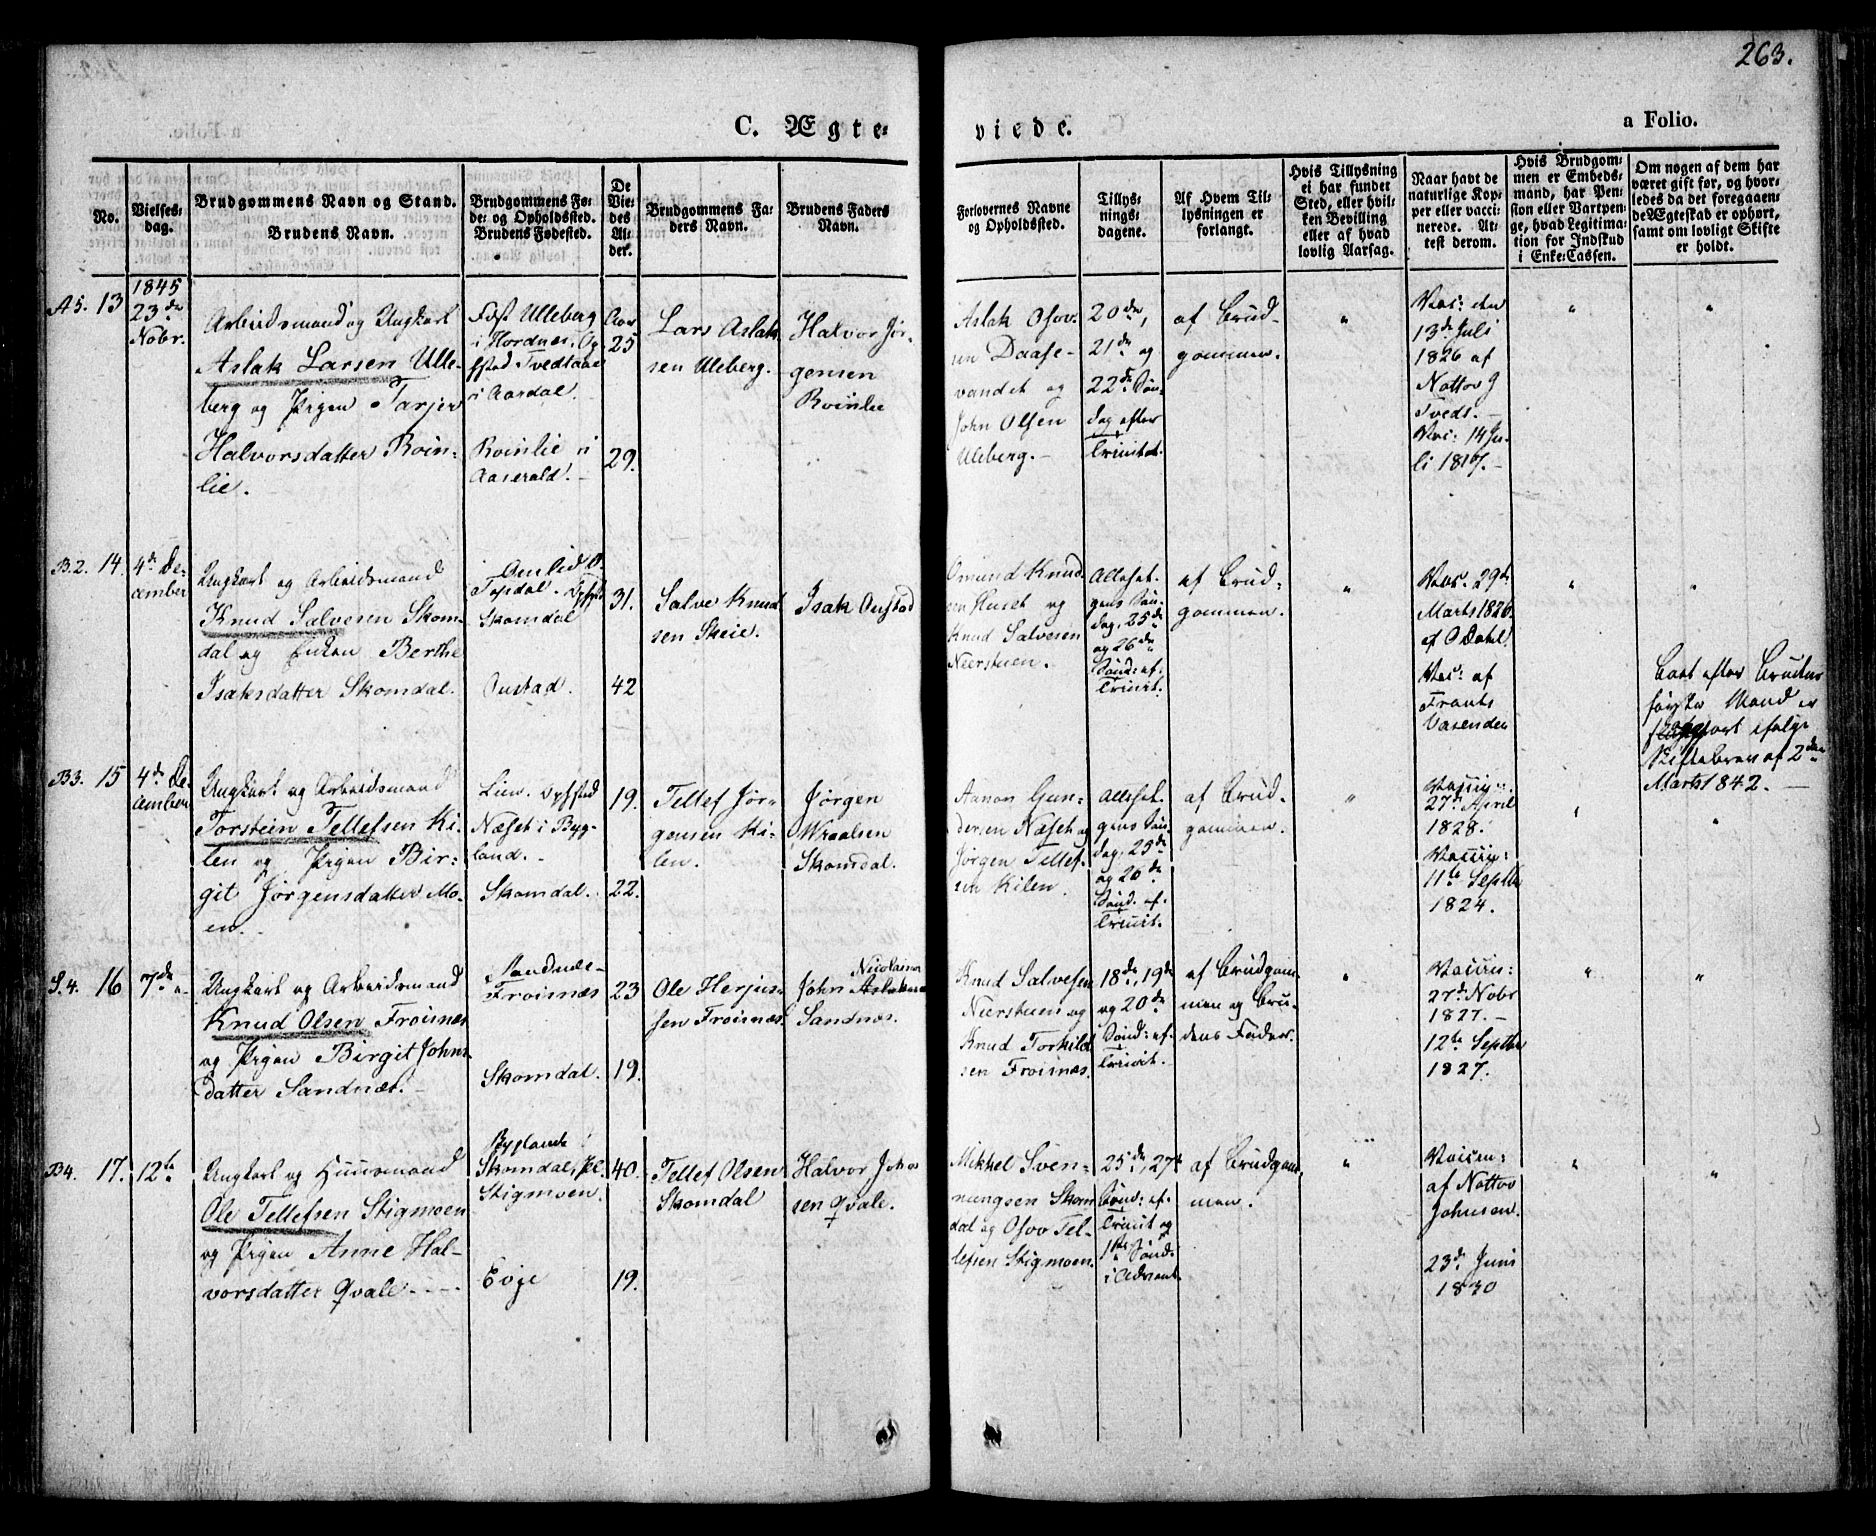 263.
C. Ægte-
viede.
a Folio.
No.
Vielses-
dag.
Brudgommens Navn og Stand.
Brudens Navn.
Brudgommens Fø-
de- og Opholdssted.
Brudens Fødested.
De
Vie-
des
Al-
der.
Brudgommens Fa-
ders Navn.
Brudens Faders
Navn.
Forlovernes Navne
og Opholdssted.
Tillys-
nings-
dagene.
Af Hvem Til-
lysningen er
forlangt.
Hvis Tillysning
ei har fundet
Sted, eller hvil-
ken Bevilling
eller af hvad
lovlig Aarsag.
Naar havt de
naturlige Kop-
per eller vacci-
nerede. At-
test derom.
Hvis Brudgom-
men er Embeds-
mand, har Pen-
sion eller Vartpen-
ge, hvad Legitima-
tion for Indskud
i Enke-Cassen.
Om nogen af dem har
været gift før, og hvor-
ledes da det foregaaen-
de Ægteskab er ophørt,
samt om lovligt Skifte
er holdt.
A5. 13
1845
23de
Nobr.
Arbeidsmand og Ungkarl
Aslak Larsen Ulle-
berg og Pigen Tarjer
Halvorsdatter Roin-
lie.
Født Ulleberg
i Hordnes, Op-
Tvedtaae
i Aardal.
Roinlie i
Aaserald.
Aar
25
29.
Lars Aslak
sen Uleberg.
Halvor Jør-
gensen
Roinlie
Aslak Osov-
sen Daase-
vandet og
John Olsen
Uleberg.
20de,
21de og
22de Søn-
dag efter
Trinitat.
af Brud-
gommen.
"
Vac: den
13de Juli
1826 af
Nottov G
Tveds.
Vac: 14 Ju-
li 1817.
"
"
B.2. 14.
4de De-
cember
Ungkarl og Arbeidsmand
Knud Salvesen Skom-
dal og Enken Berthe
Isaksdatter Skomdal.
Omlid O.
Topdal. Opst
Skomdal
Oustad.
31.
42
Salve Knud
sen Skeie.
Isak Oustad
Omund Knud-
sen Huset og
Knud Salvesen
Neerstuen.
Allesat-
gens Søn-
dag, 25de
og 26de
Sønd: ef.
Trinit.
af Brud-
gommen.
"
Vac. 29de
Marts 1826
af O Dahl.
Vac: af
Frants
Vasenden
"
"
Boet efter Brudens
første Mand er
ifølge
Skiftebrev af 2den
Marts 1842.
B3. 15
4de De-
cember
Ungkarl og Arbeidsmand
Torstein Tellefsen Ki-
len og Pigen Bir-
git Jørgensdatter Mo-
en.
Lien. Opsted
Næset i Byg-
land.
Skomdal.
19.
22.
Tellef Jør-
gensen Ki-
len.
Jørgen
Wraalsen
Skomdal.
Aanon Gun-
dersen Næset og
Jørgen Tellef-
sen Kilen.
Allesat-
gens Søn-
dag, 25de
og 20de
Sønd. ef-
Trinit.
af Brud-
gommen.
"
27de April
1828.
11te Septbr
1824.
"
"
S.4. 16
7de "
Ungkarl og Arbeidsmand
Knud Olsen Froisnæs
og Pigen Birgit Johns
datter Sandnæs.
Sandnæs
Froisnæs
Skomdal.
23
19.
Ole Herjus-
sen Froisnæs.
Nicolaisen
John Aslaksen
Sandnæs.
Knud Salvesen
Neerstuen og
Knud Torkild
sen Froisnæs.
18de, 19de
og 20de
Sønd: ef-
Trinit.
af Brudgom-
men og Bru-
dens Fader.
"
27de Nobr
1827.
12te Septbr
1827.
"
"
B4. 17.
12te
Ungkarl og Huusmand
Ole Tellefsen Stigmoen
og Pigen Anne Hal-
vorsdatter Qvale
Byglands
Skomdal,
Stigmoen.
Evje
40.
19.
Tellef Olsen
Skomdal
Halvor Johns
sen Qvale.
Mikkel Sven-
nungsen Skom
dal og Osov Tel-
lefsen Stigmoen.
25de, 27de
Sønd: ef-
Trinit og
1ste Sønd:
i Advent.
af Brudgom-
men.
"
af Nottov
Johnsen.
23de Juni
1830
"
"